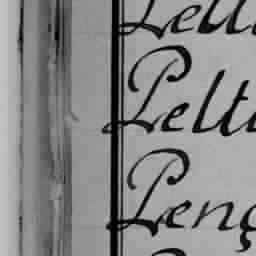 Pelt
Pelta
Penç